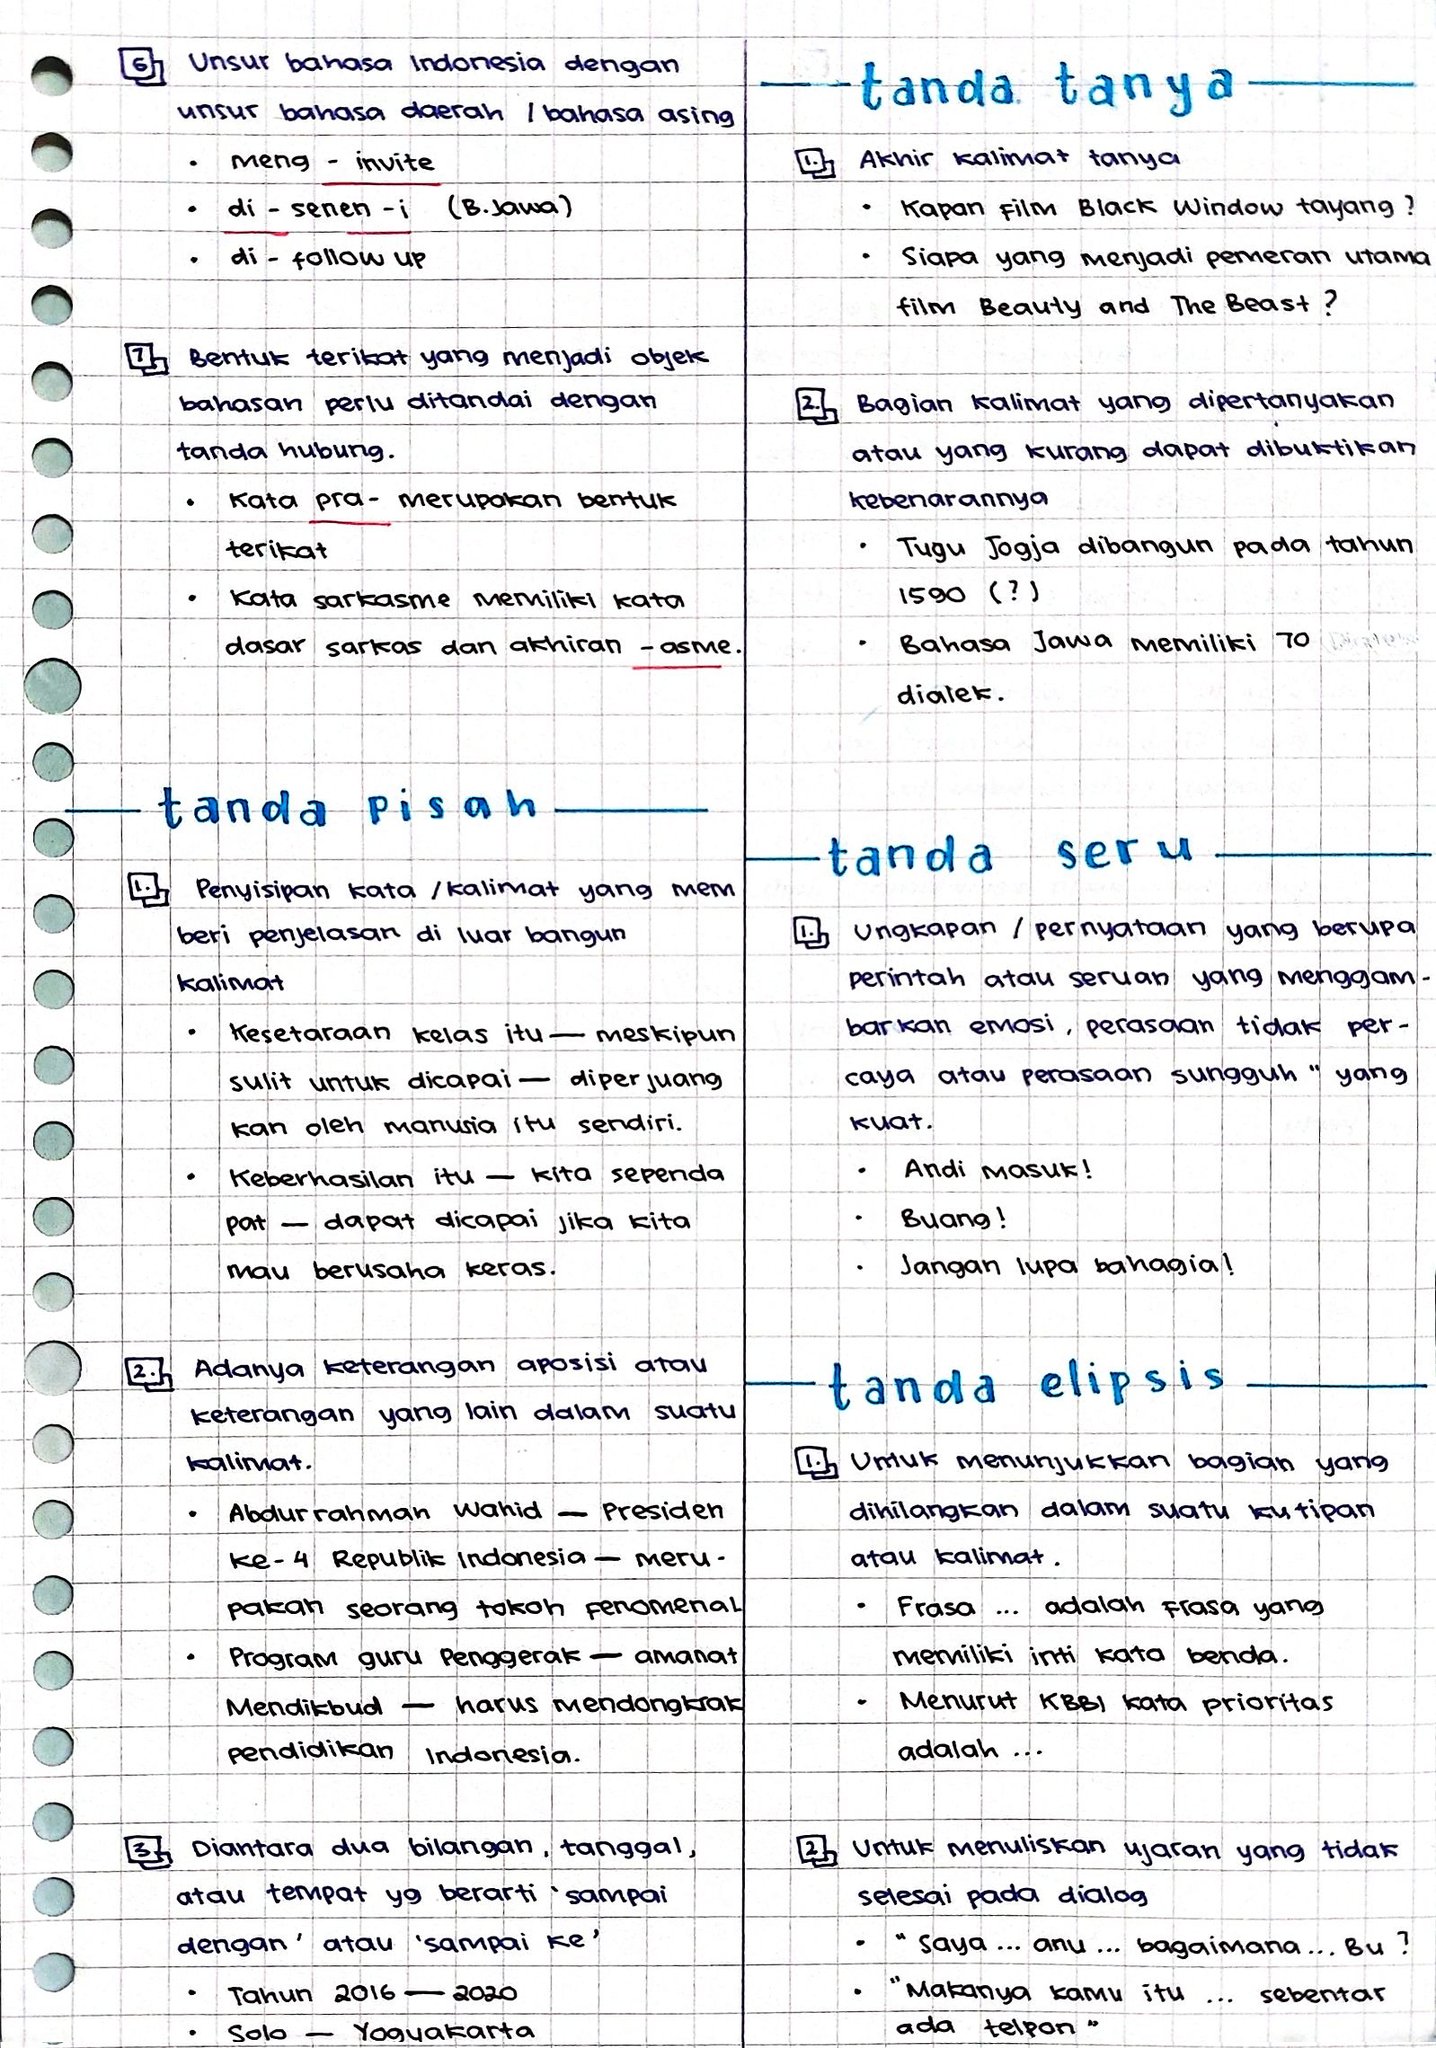 6 Unsur bahasa Indonesia dengan
unsur bahasa daerah / bahasa asing
• meng - invite
• di - senen - i (B. Jawa)
• di - follow up
7 Bentuk terikat yang menjadi objek
bahasan perlu ditandai dengan
tanda hubung.
• Kata pra- merupakan bentuk
terikat
• Kata sarkasme memiliki kata
dasar sarkas dan akhiran -asme.
tanda pisah
1. Penyisipan kata / kalimat yang mem
beri penjelasan di luar bangun
kalimat
• Kesetaraan kelas itu — meskipun
sulit untuk dicapai — diperjuang
kan oleh manusia itu sendiri.
• Keberhasilan itu — kita sependa
pat — dapat dicapai jika kita
mau berusaha keras.
2. Adanya keterangan aposisi atau
keterangan yang lain dalam suatu
kalimat.
• Abdurrahman Wahid — Presiden
ke-4 Republik Indonesia — meru-
pakan seorang tokoh fenomenal
• Program guru Penggerak — amanat
Mendikbud — harus mendongkrak
pendidikan Indonesia.
3. Diantara dua bilangan, tanggal,
atau tempat yg berarti 'sampai
dengan' atau 'sampai ke'
• Tahun 2016 — 2020
• Solo — Yogyakarta
tanda tanya
1. Akhir kalimat tanya
• Kapan film Black Window tayang?
• Siapa yang menjadi pemeran utama
film Beauty and The Beast?
2. Bagian kalimat yang dipertanyakan
atau yang kurang dapat dibuktikan
kebenarannya
• Tugu Jogja dibangun pada tahun
1590 (?)
• Bahasa Jawa memiliki 70
dialek.
tanda seru
1. Ungkapan / pernyataan yang berupa
perintah atau seruan yang menggam-
barkan emosi, perasaan tidak per-
caya atau perasaan sungguh" yang
kuat.
• Andi masuk!
• Buang!
• Jangan lupa bahagia!
tanda elipsis
1. Untuk menunjukkan bagian yang
dihilangkan dalam suatu kutipan
atau kalimat.
• Frasa ... adalah frasa yang
memiliki inti kata benda.
• Menurut KBBI kata prioritas
adalah ...
2 Untuk menuliskan ujaran yang tidak
selesai pada dialog
• " Saya ... anu ... bagaimana ... Bu ?
• "Makanya kamu itu ... sebentar
ada telpon"